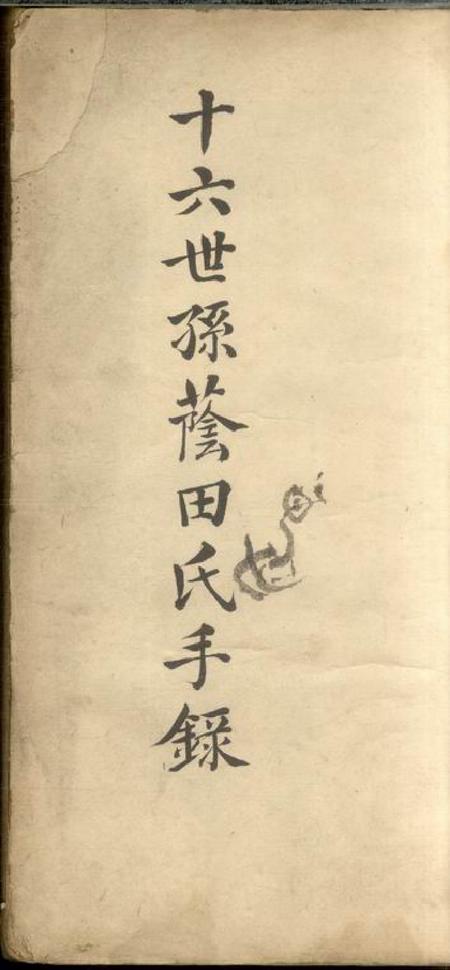 十六世孫蔭田氏手錄